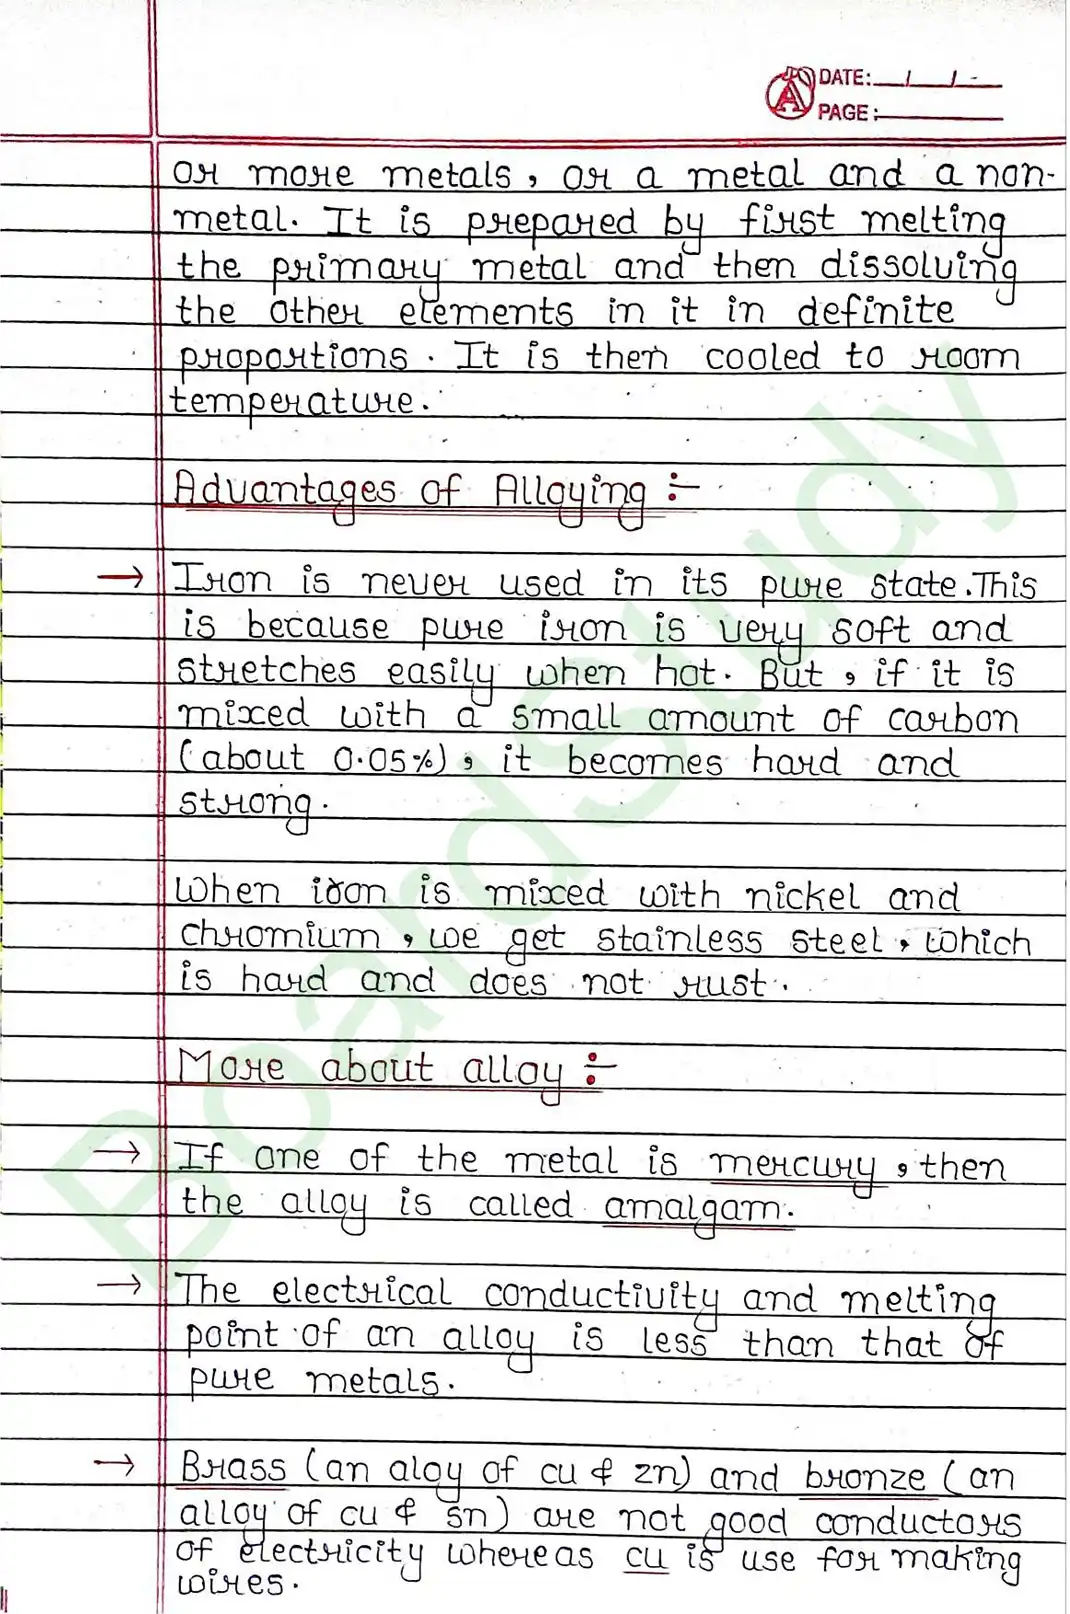 DATE: / / -
PAGE:
or more metals, or a metal and a non-
metal. It is prepared by first melting
the primary metal and then dissolving
the other elements in it in definite
proportions. It is then cooled to room
temperature.
Advantages of Alloying :-
→ Iron is never used in its pure state. This
is because pure iron is very soft and
stretches easily when hot. But, if it is
mixed with a small amount of carbon
(about 0.05%), it becomes hard and
strong.
When iron is mixed with nickel and
chromium, we get stainless steel, which
is hard and does not rust.
More about alloy :-
→ If one of the metal is mercury, then
the alloy is called amalgam.
→ The electrical conductivity and melting
point of an alloy is less than that of
pure metals.
→ Brass (an aloy of cu & zn) and bronze (an
alloy of cu & sn) are not good conductors
of electricity whereas cu is use for making
wires.
BoardStudy